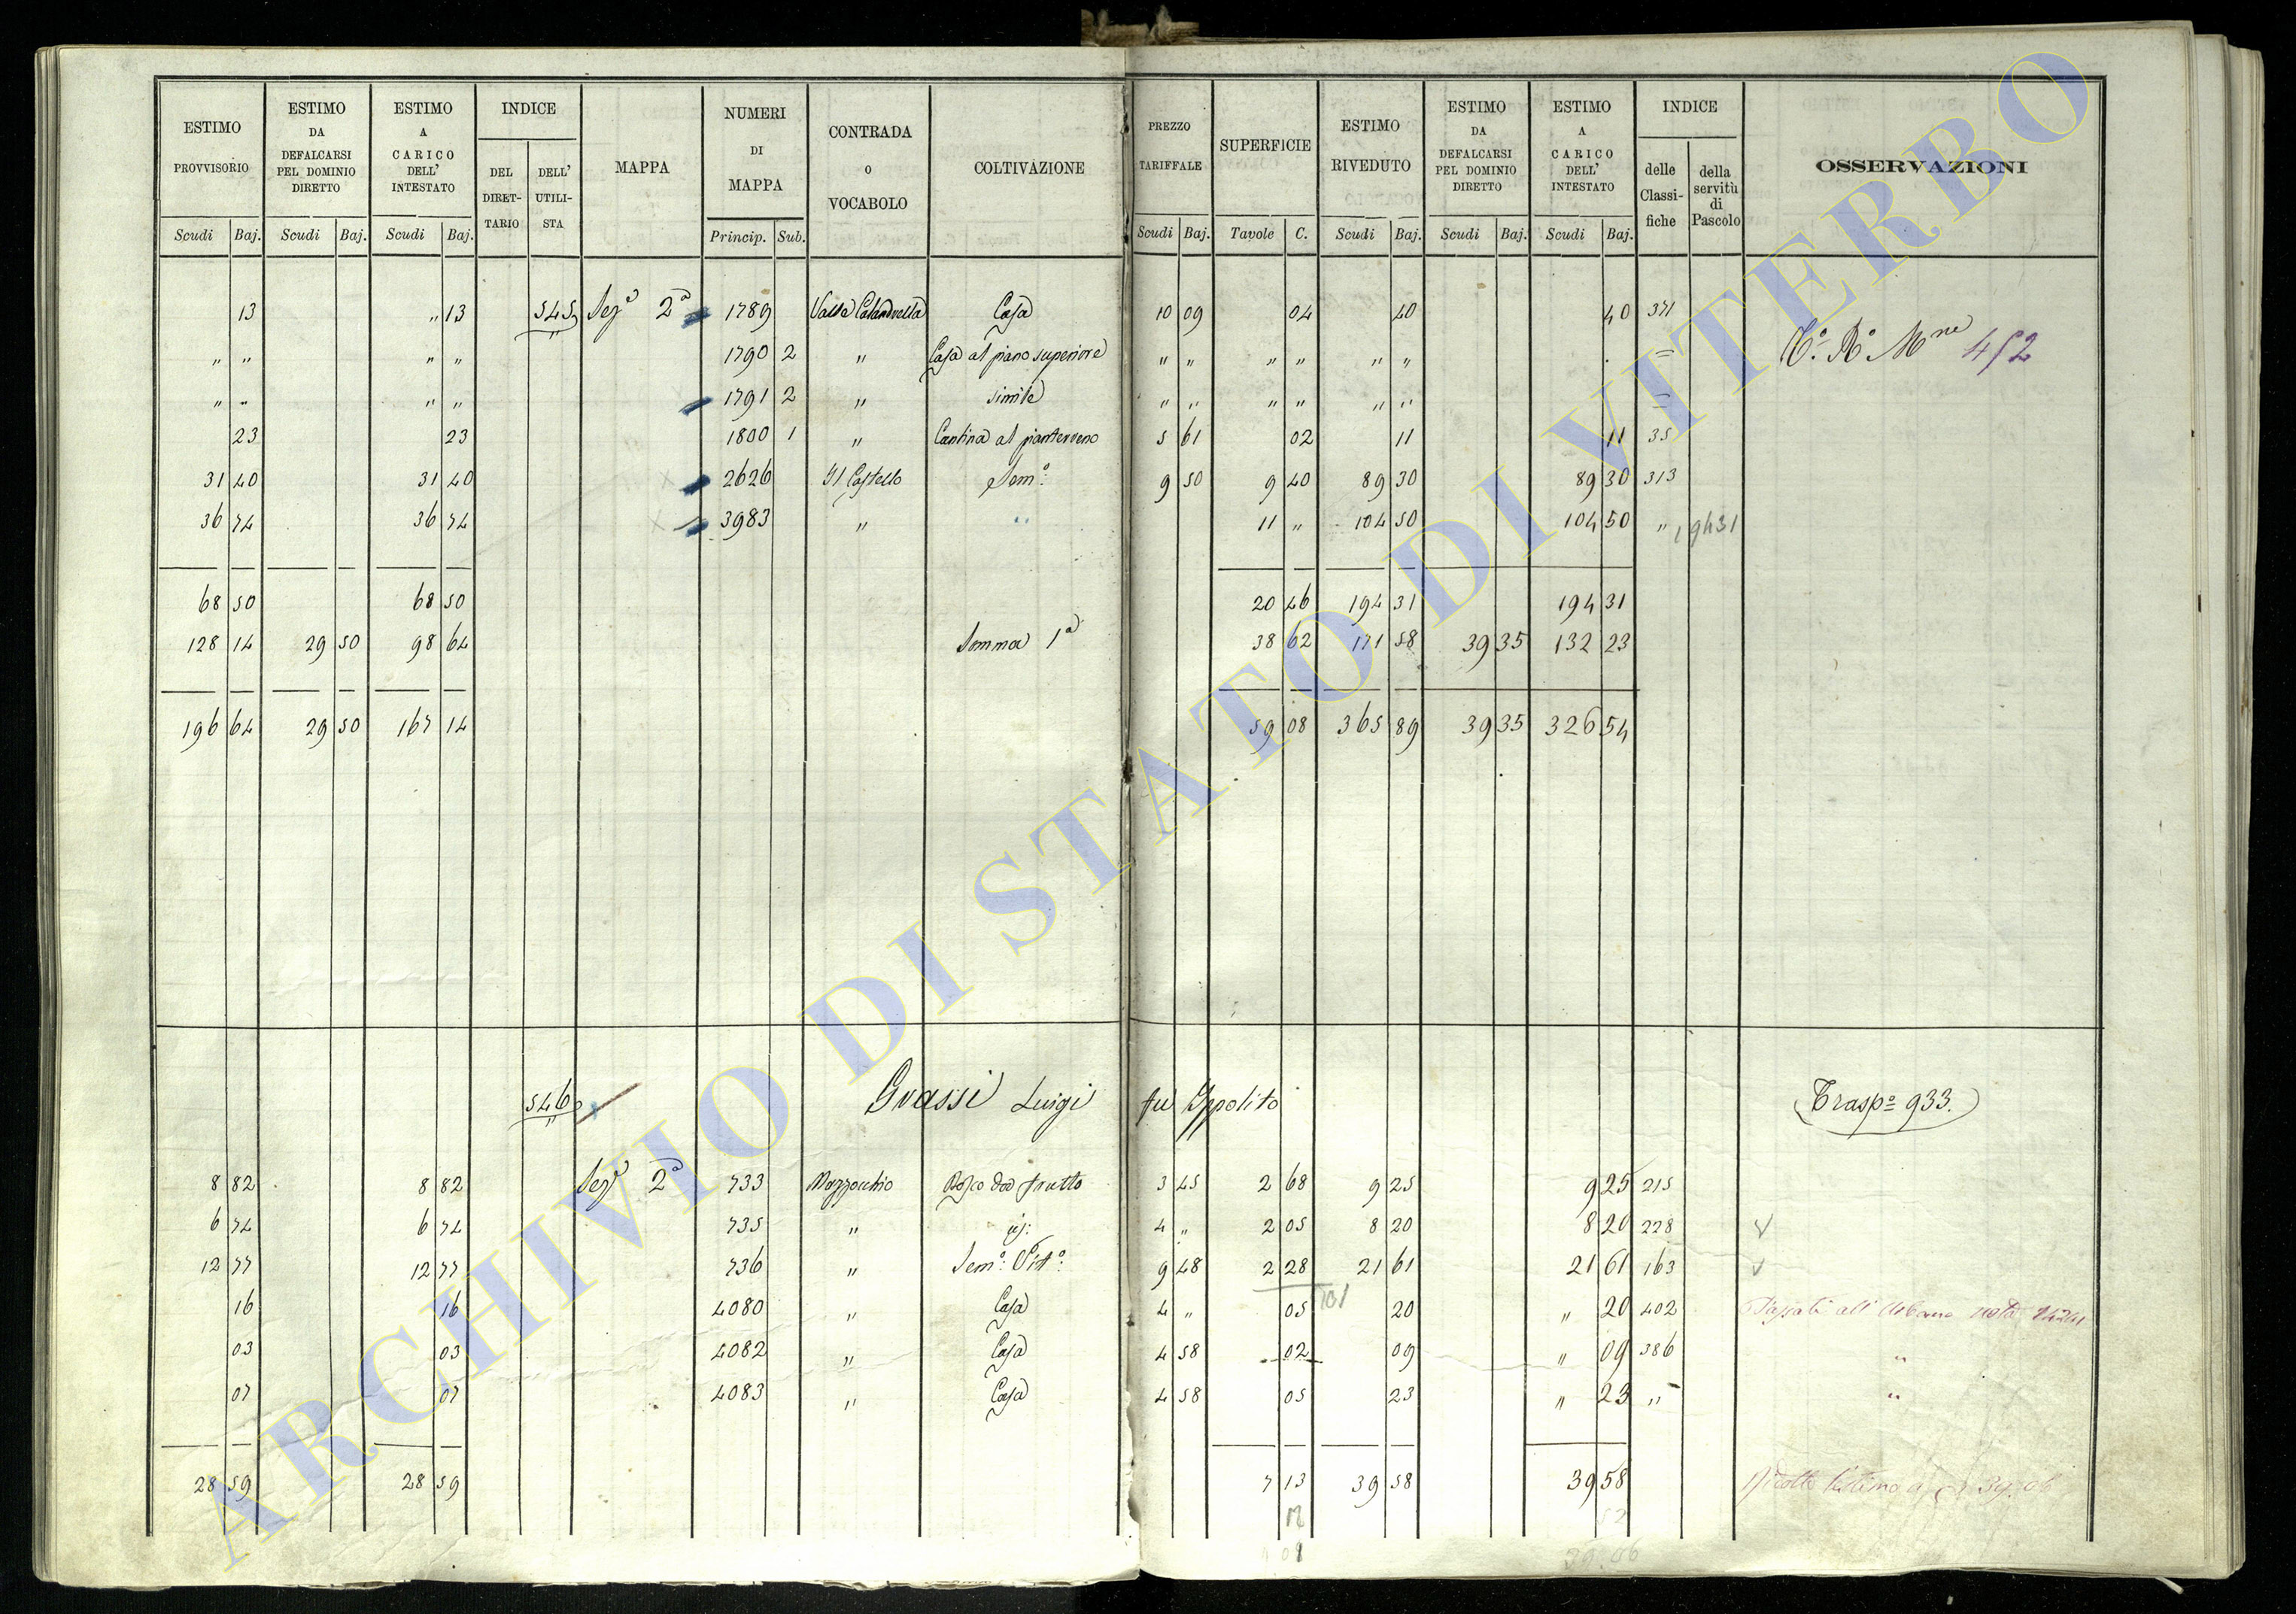 ESTIMO PROVVISORIO | ESTIMO DA DEFALCARSI PEL DOMINIO DIRETTO | ESTIMO A CARICO DELL' INTESTATO | INDICE | MAPPA | NUMERI DI MAPPA | CONTRADA O VOCABOLO | COLTIVAZIONE | PREZZO TARIFFALE | SUPERFICIE | ESTIMO RIVEDUTO | ESTIMO DA DEFALCARSI PEL DOMINIO DIRETTO | ESTIMO A CARICO DELL' INTESTATO | INDICE | OSSERVAZIONI
DEL DIRETTARIO | DELL' UTILISTA | delle Classifiche | della servitù di Pascolo
Scudi Baj. | Scudi Baj. | Scudi Baj. | Princip. Sub. | Scudi Baj. | Tavole C. | Scudi Baj. | Scudi Baj. | Scudi Baj.
13 | " 13 | 545 | Sezᵉ 2ª | 1789 | Casa | 10 09 | 04 | 40 | 40 | 371
" " | " " | 1790 2 | " | Casa al piano superiore | " " | " " | " " | = | Cº Rº Mne 452
" " | " " | 1791 2 | " | simile | " " | " " | " " | =
23 | 23 | 1800 1 | " | Cantina al pianterreno | 5 61 | 02 | 11 | 11 | 35
31 40 | 31 40 | 2626 | Il Castello | Semº: | 9 50 | 9 40 | 89 30 | 89 30 | 313
36 74 | 36 74 | 3983 | " | " | 11 " | 104 50 | 104 50 | " | 19431
68 50 | 68 50 | 20 46 | 194 31 | 194 31
128 14 | 29 50 | 98 64 | Somma 1ª | 38 62 | 171 58 | 39 35 | 132 23
196 64 | 29 50 | 167 14 | 59 08 | 365 89 | 39 35 | 326 54
546 | Grassi Luigi fu Ippolito | (Traspº 933.)
8 82 | 8 82 | Sezᵉ 2ª | 733 | Mazzocchio | Bosco dad frutto | 3 45 | 2 68 | 9 25 | 9 25 | 215
6 74 | 6 74 | 735 | " | 4 " | 2 05 | 8 20 | 8 20 | 228
12 77 | 12 77 | 736 | " | Semº: Vitº: | 9 48 | 2 28 | 21 61 | 21 61 | 163
16 | 16 | 4080 | " | Casa | 4 " | 05 | 701 | 20 | " 20 | 402 | Passati all' Urbano nota
03 | 03 | 4082 | " | Casa | 4 58 | 02 | 09 | " 09 | 386 | "
07 | 07 | 4083 | " | Casa | 4 58 | 05 | 23 | " 23 | " | "
28 59 | 28 59 | 7 13 | 39 58 | 39 58 | Ridotto l'estimo a 39.06
12 | 52
39.06
ARCHIVIO DI STATO DI VITERBO